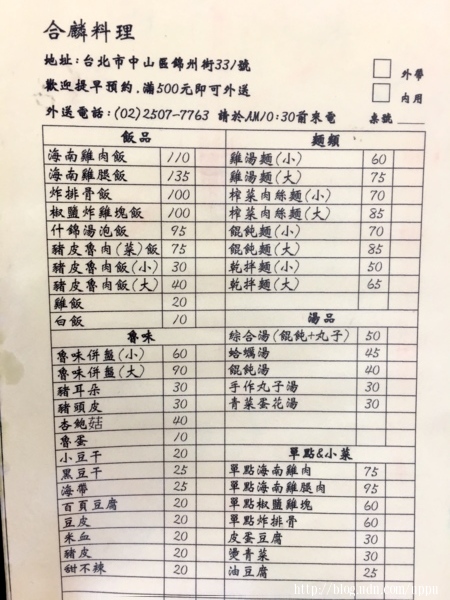 合麟料理
地址:台北市中山區錦州街331號
歡迎提早預約,滿500元即可外送
外送電話:(02)2507-7763 請於AM10:30前來電
外帶
內用
桌號
飯品
海南雞肉飯 110
海南雞腿飯 135
炸排骨飯 100
椒鹽炸雞塊飯 100
什錦湯泡飯 95
豬皮魯肉(菜)飯 75
豬皮魯肉飯(小) 30
豬皮魯肉飯(大) 40
雞飯 20
白飯 10
魯味
魯味併盤(小) 60
魯味併盤(大) 90
豬耳朵 30
豬頭皮 30
杏鮑菇 40
魯蛋 10
小豆干 20
黑豆干 25
海帶 25
百頁豆腐 20
豆皮 20
米血 20
豬皮 20
甜不辣 20
麵類
雞湯麵(小) 60
雞湯麵(大) 75
榨菜肉絲麵(小) 70
榨菜肉絲麵(大) 85
餛飩麵(小) 70
餛飩麵(大) 85
乾拌麵(小) 50
乾拌麵(大) 65
湯品
綜合湯(餛飩+丸子) 50
蛤蠣湯 45
餛飩湯 40
手作丸子湯 30
青菜蛋花湯 30
單點&小菜
單點海南雞肉 75
單點海南雞腿肉 95
單點椒鹽雞塊 60
單點炸排骨 60
皮蛋豆腐 30
燙青菜 30
油豆腐 25